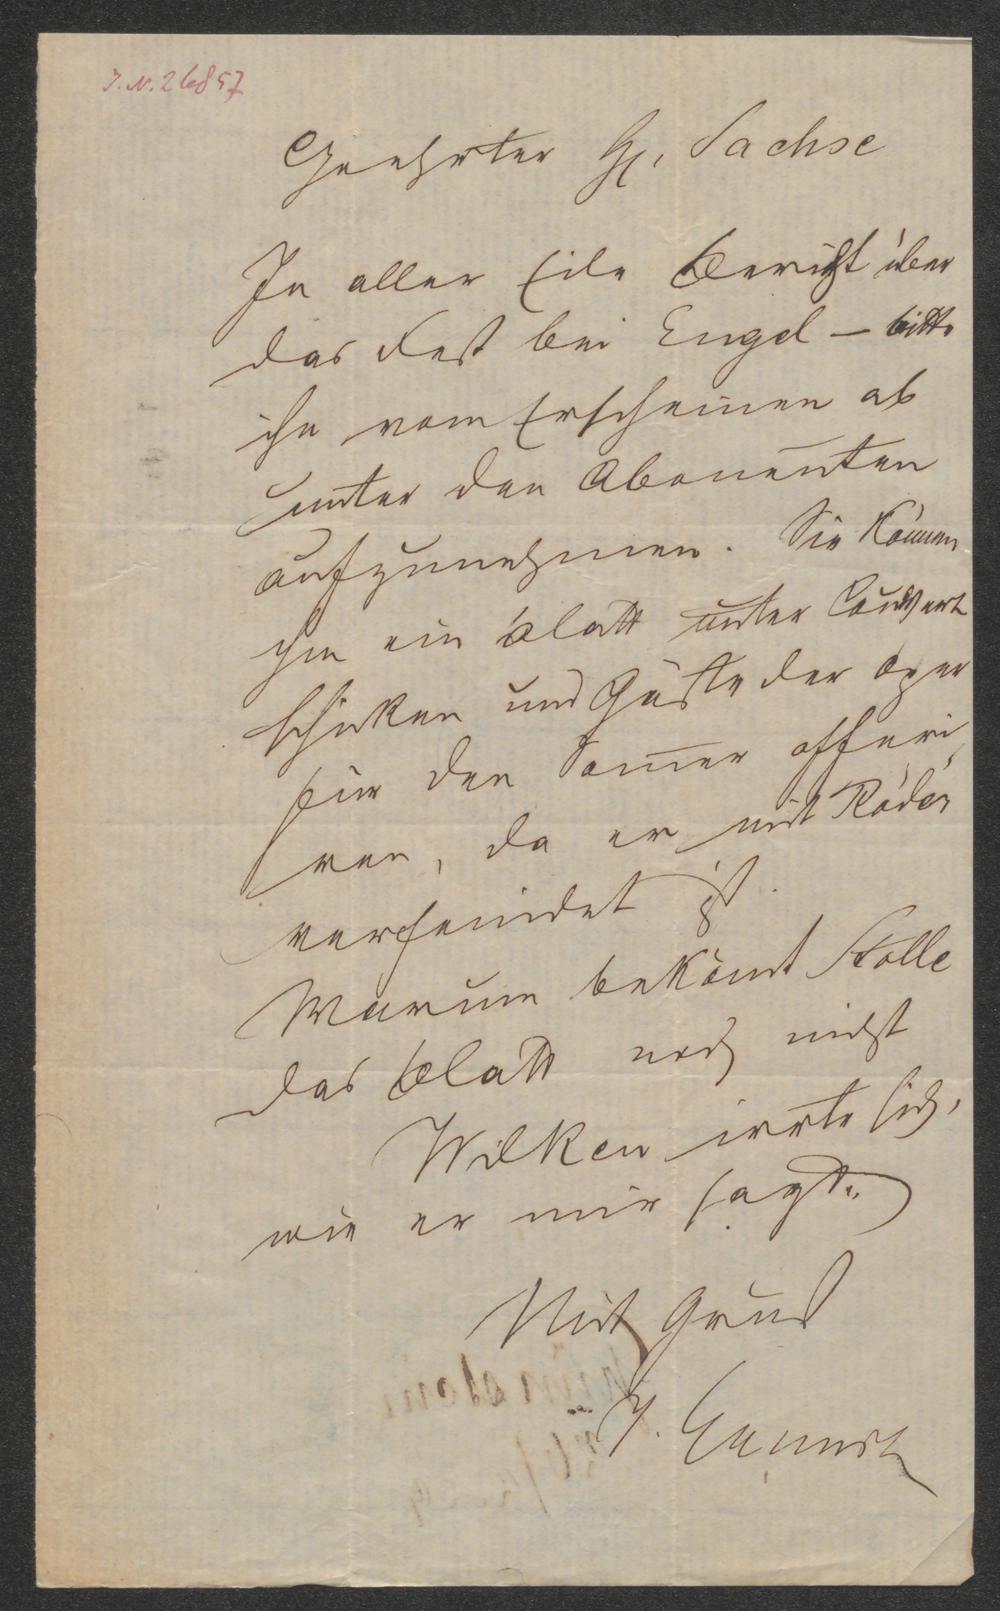 I. N. 26857
Geehrter H. Sachse
In aller Eile Bericht über
das Fest bei Engel – bitte
ihn vom Erscheinen ab
unter den Abonenten
aufzunehmen. Sie können
ihm ein Blatt unter Couvert
schicken und Gäste der Oper
für den Som̅er offeri
ren, da er mit Räder
verfeindet ist.
Warum bekom̅t Stolle
das Blatt noch nicht
Wilken irrte sich,
wie er mir sagt.
Mit Gruß